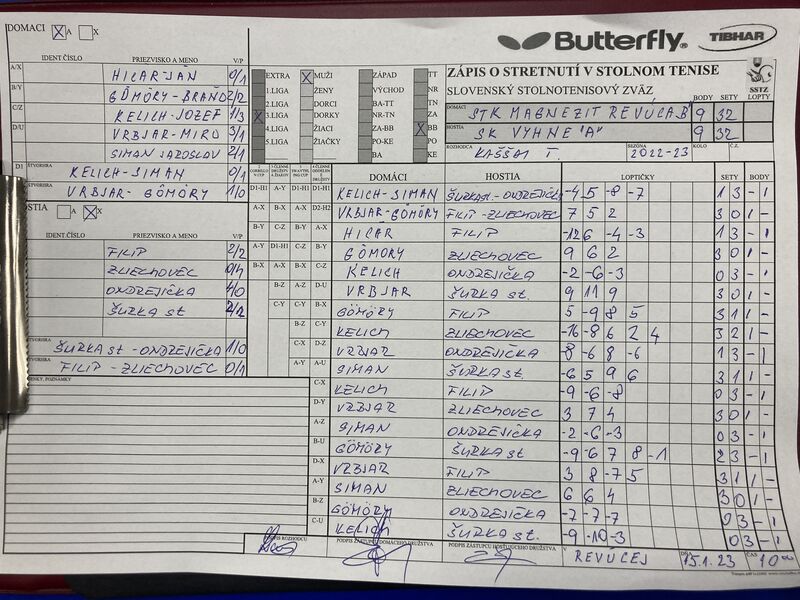 DOMACI X A X
IDENT ČÍSLO PRIEZVISKO A MENO V/P
A/X HICAR JÁN 0/1
B/Y GÖMÖRY BRAŇO 2/2
C/Z KELICH JOZEF 1/3
D/U VRBJAR MIRO 3/1
SIMAN JAROSLAV 2/1
D1 ŠTVORHRA KELICH-SIMAN 0/1
ŠTVORHRA VRBJAR-GÖMÖRY 1/0
HOSTIA A X
IDENT ČÍSLO PRIEZVISKO A MENO V/P
FILIP 2/2
ZLIECHOVEC 0/4
ONDREJIČKA 4/0
ŠURKA st 2/2
ŠURKA st - ONDREJIČKA 1/0
FILIP - ZLIECHOVEC 0/1
POZNÁMKY
Butterfly
TIBHAR
ZÁPIS O STRETNUTÍ V STOLNOM TENISE
SLOVENSKÝ STOLNOTENISOVÝ ZVÄZ
SSTZ
BODY SETY LOPTY
DOMÁCI STK MAGNEZIT REVÚCA B 9 32
HOSTIA SK VYHNE "A" 9 32
ROZHODCA KAŠŠAI T. SEZÓNA 2022-23 KOLO Č.Z.
EXTRA X MUŽI ZÁPAD TT
1.LIGA ŽENY VÝCHOD NR
2.LIGA DORCI BA-TT TN
X 3.LIGA DORKY NR-TN ZA
4.LIGA ŽIACI ZA-BB X BB
5.LIGA ŽIAČKY PO-KE PO
BA KE
DOMÁCI HOSTIA LOPTIČKY SETY BODY
D1-H1 A-Y A-X D1-H1 KELICH-SIMAN ŠURKA st.-ONDREJIČKA -4 5 -8 -7 1 3 - 1
A-X B-X B-Y D2-H2 VRBJAR-GÖMÖRY FILIP-ZLIECHOVEC 7 5 2 3 0 1 -
B-Y C-Z C-Z A-X HICAR FILIP -12 6 -4 -3 1 3 - 1
A-Y D1-H1 C-X B-Y GÖMÖRY ZLIECHOVEC 9 6 2 3 0 1 -
B-X A-X B-X C-Z KELICH ONDREJIČKA -2 -6 -3 0 3 - 1
B-Z A-Z D-U VRBJAR ŠURKA st. 9 11 9 3 0 1 -
C-Y C-Y B-X GÖMÖRY FILIP 5 -9 8 5 3 1 1 -
B-Z C-Y KELICH ZLIECHOVEC -16 -8 6 2 4 3 2 1 -
C-X D-Z VRBJAR ONDREJIČKA -8 -6 8 -6 1 3 - 1
A-Y A-U SIMAN ŠURKA st. -6 5 9 6 3 1 1 -
C-X KELICH FILIP -9 -6 -8 0 3 - 1
D-Y VRBJAR ZLIECHOVEC 3 7 4 3 0 1 -
A-Z SIMAN ONDREJIČKA -2 -6 -3 0 3 - 1
B-U GÖMÖRY ŠURKA st -9 -6 7 8 -1 2 3 - 1
D-X VRBJAR FILIP 3 8 -7 5 3 1 1 -
A-Y SIMAN ZLIECHOVEC 6 6 4 3 0 1 -
B-Z GÖMÖRY ONDREJIČKA -7 -7 -7 0 3 - 1
C-U KELICH ŠURKA st. -9 -10 -3 0 3 - 1
PODPIS ROZHODCU PODPIS ZÁSTUPCU DOMÁCEHO DRUŽSTVA PODPIS ZÁSTUPCU HOSŤUJÚCEHO DRUŽSTVA V REVÚCEJ DŇA 15.1.23 ČAS 10 00